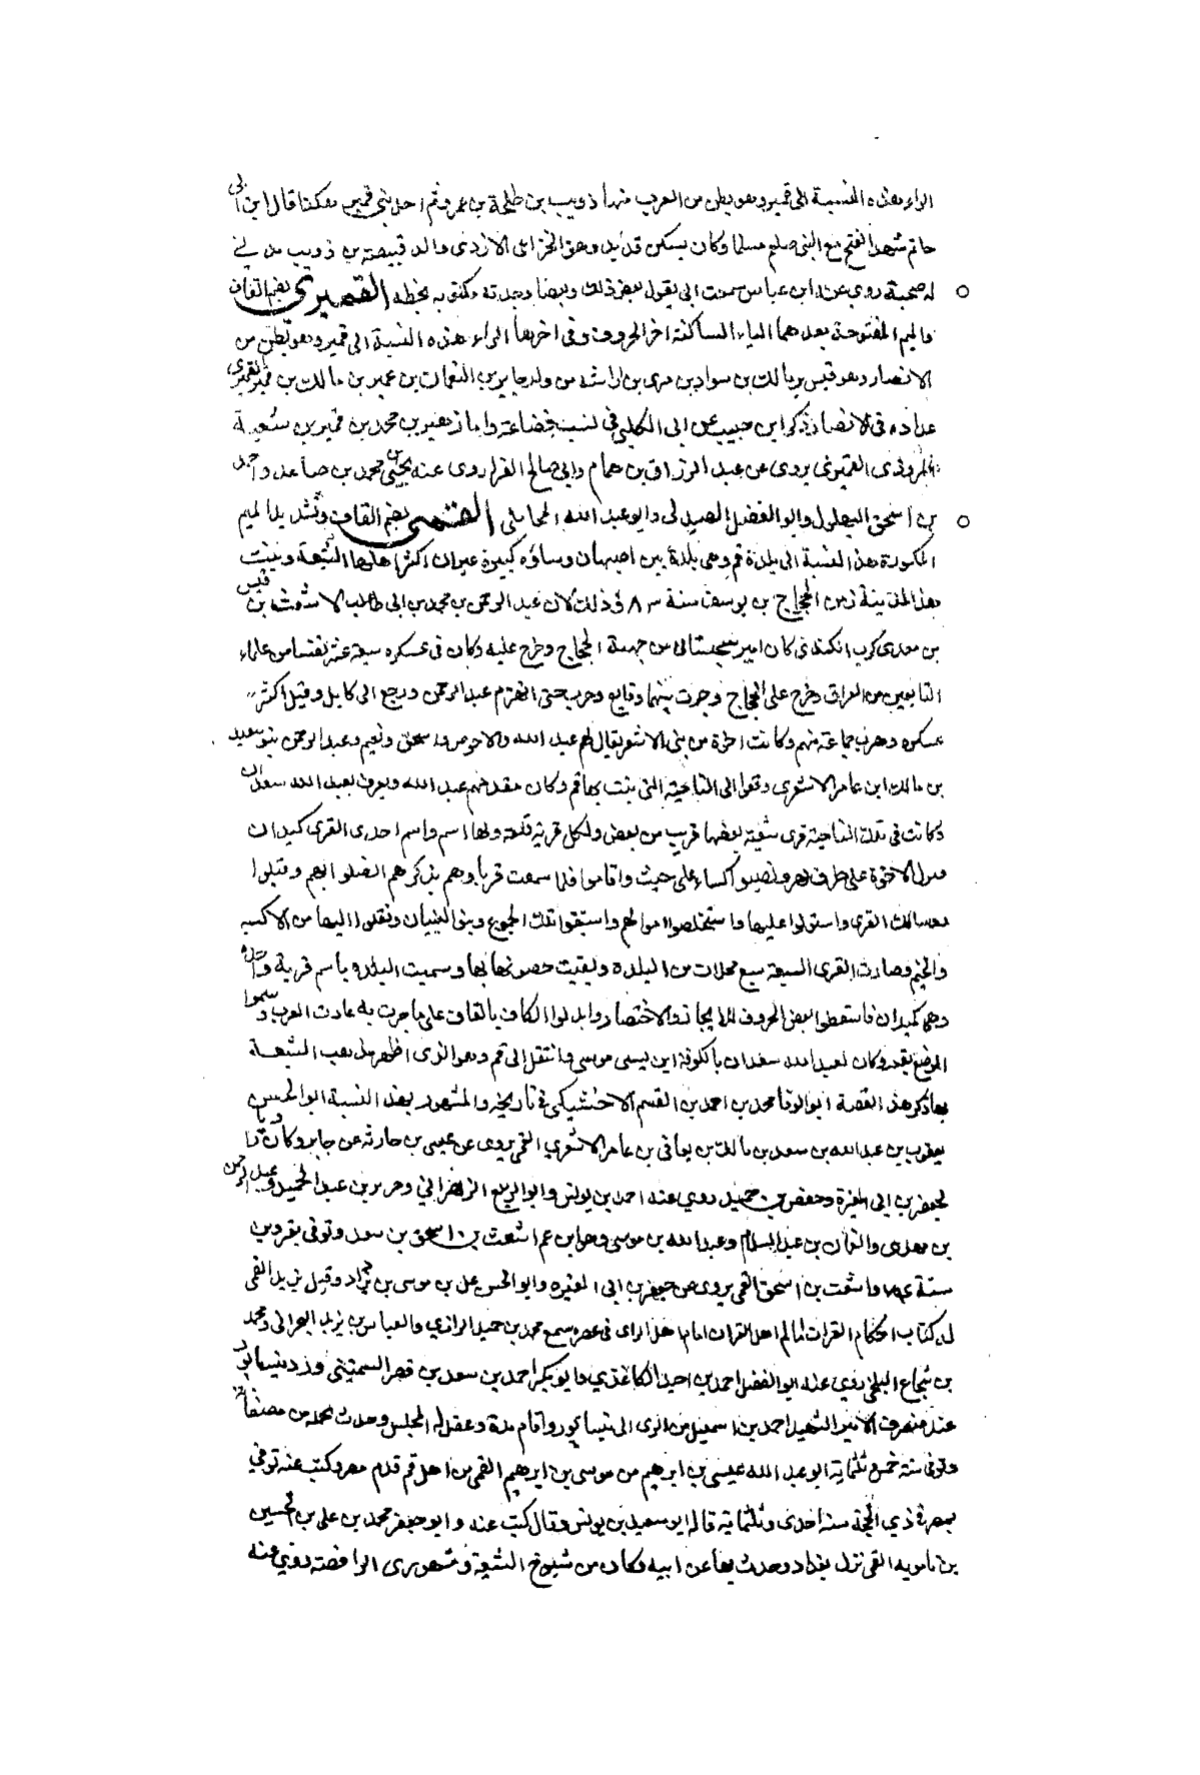 الراء هذه النسبة الى قمير وهو بطن من العرب منها ذويب بن طلحة بن عمرو ثم احد بني قمير هكذا قال ابن ابي
حاتم شهد الفتح مع النبي صلعم مسلما وكان يسكن قديد وهو الخزاعي الازدي والد قبيصة بن ذويب مدني
له صحبة روى عنه ابن عباس سمعت ابي يقول بعض ذلك وبعضا وجدته مكتوبه بخطه القميري بضم القاف
والميم المفتوحة بعدهما الياء الساكنة اخر الحروف وفي اخرها الراء هذه النسبة الى قمير وهو بطن من
الانصار وهو قيس بن مالك بن سواد بن مري بن اراشه من ولد جابر بن النعمان بن عمير بن مالك بن قمير القميري
عداده في الانصار ذكر ابن حبيب عن ابن الكلبي في نسب قضاعة واما زهير بن محمد بن قمير بن شعبة
المروذي القميري يروي عن عبد الرزاق بن همام وابي صالح الفرا روى عنه يحيى بن محمد بن صاعد واحمد
بن اسحق البهلول وابو الفضل الصيدلي وابو عبد الله المحاملي القمي بضم القاف وتشديد الميم
المكسورة هذه النسبة الى بلدة قم وهي بلدة بين اصبهان وساوه كبيرة غير ان اكثر اهلها الشيعة وبنيت
هذا المدينة زمن الحجاج بن يوسف سنة ٨٣ وذلك لان عبد الرحمن بن محمد بن ابي طالب الاشعث بن قيس
بن معدي كرب الكندي كان امير سجستان من جهة الحجاج وخرج عليه وكان في عسكره سبعة عشر نفسا من علماء
التابعين من العراق وخرج على الحجاج وجرت بينهما وقايع وحرب حتى انهزم عبد الرحمن ورجع الى كابل وقتل اكثر
عسكره وهرب جماعة منهم وكانت اخوة من بني الاشعر يقال لهم عبد الله والاحوص واسحق ونعيم وعبد الرحمن بنو سعيد
بن مالك ابن عامر الاشعري وقعوا الى الناحية التي بنت بها قم وكان مقدمهم عبد الله ويعرف بعبد الله سعدان
وكانت في تلك الناحية قرى سبعة بعضها قريب من بعض ولكل قرية قلعة ولها اسم واسم احدى القرى كميدان
فنزل الاخوة على طرف نهر ونصبوا كساء على خشب واقاموا فلما سمعت قرباوهم بذكرهم انضلوا بهم وقتلوا
روسا تلك القرى واستولوا عليها واستخلصوا اموالهم واستبقوا تلك الجموع وبنوا البنيان ونقلوا اليها من الاكسية
والخيم وصارت القرى السبعة سبع محلات من البلدة وبقيت حصونها بها وسميت البلد باسم قرية واحدة
وهي كميدان فاسقطوا بعض الحروف للايجاز والاختصار وابدلوا الكاف بالقاف على ما جرت به عادت العرب وسموا
الموضع بقم وكان لعبد الله سعدان بالكوفة ابن يسمى موسى وانتقل الى قم وهو الذي اظهر مذهب الشيعة
بها ذكر هذه القصة ابو الوفا محمد بن احمد بن القسم الاخسيكتي في تاريخه والمشهور بهذه النسبة ابو الحسن
يعقوب بن عبد الله بن سعد بن مالك بن هاني بن عامر الاشعري القمي يروي عن عيسى بن حارثة عن جابر وكان
لجعفر بن ابي المغيرة وحفص بن حميد روى عنه احمد بن يونس وابو الربيع الزهراني وجرير بن عبد الحميد وعبد الرحمن
بن مهدي والنعمان بن عبد السلام وعبد الله بن موسى وهو ابن عم اشعث بن اسحق بن سعد وتوفي بقزوين
سنة واشعث بن اسحق القمي يروي عن جعفر بن ابي المغيرة وابو الحسن علي بن موسى بن يزداد وقيل يزيد القمي
له كتاب احكام القران امام اهل الراي في عصره سمع محمد بن حميد الرازي والعباس بن يزيد البحراني ومحمد
بن شجاع البلخي روى عنه ابو الفضل احمد بن احيد الكاغذي وابو بكر احمد بن سعد بن نصر ورد نيسابور
عند منصرف الامير الشهيد احمد بن اسمعيل من الري الى نيسابور واقام مدة وعقد له المجلس وحدث بجملة من مصنفاته
وتوفي سنة خمس ثلثماية ابو عبد الله عيسى بن ابرهيم من موسى بن ابرهيم القمي من اهل قم قدم مصر وكتب عنه توفي
بمصر في ذي الحجة سنة احدى وثلثماية قاله ابو سعيد بن يونس وقال كتب عنه وابو جعفر محمد بن علي بن الحسين
بن بابويه القمي نزل بغداد وحدث بها عن ابيه وكان من شيوخ الشيعة ومشهوري الرافضة روى عنه